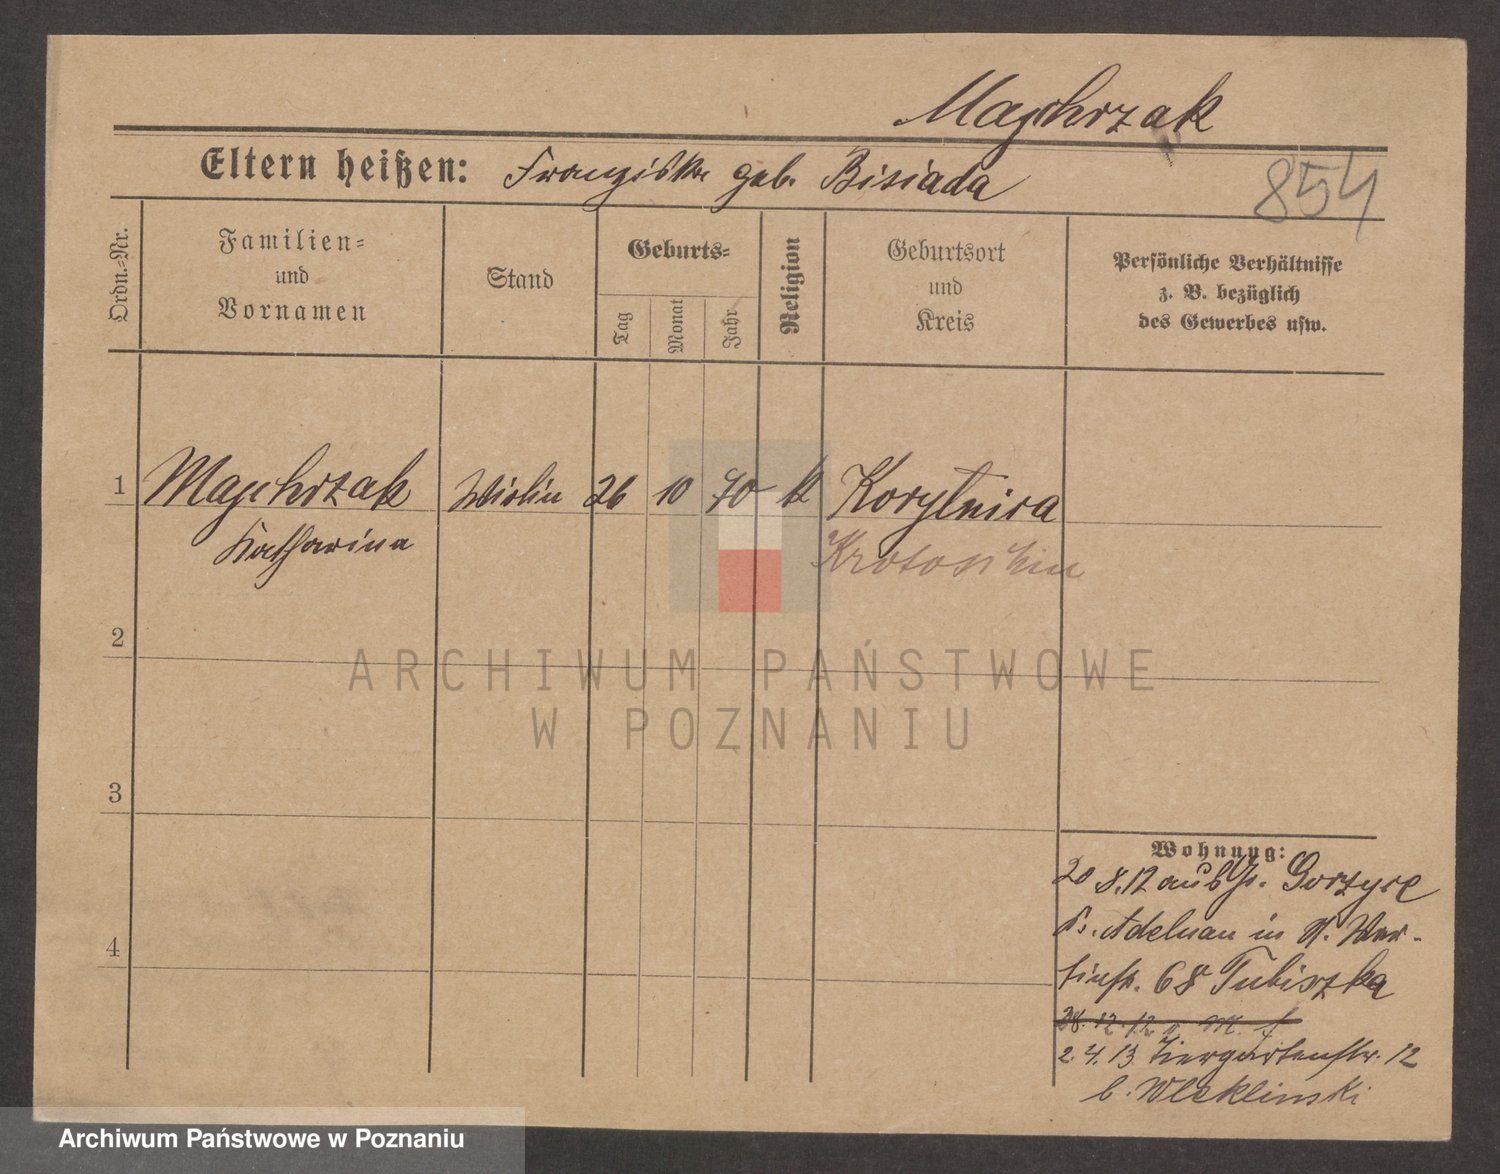 Majchrzak
Eltern heißen: Franziska geb. Bisiada
854
Ordn.-Nr.
Familien-
und
Vornamen
Stand
Geburts-
Tag
Monat
Jahr
Religion
Geburtsort
und
Kreis
Persönliche Verhältnisse
z. B. bezüglich
des Gewerbes usw.
1 Majchrzak Wirtin 26 10 70 k Korytnica
Katharina Krotoschin
2
3
4
ARCHIWUM PAŃSTWOWE
W POZNANIU
Wohnung:
20 8.12 aus Gorzyce
Adelnau in
68 Tubiszka
28. 12. 12 n M
2. 4. 13 Tiergartenstr. 12
b. Wleklinski
Archiwum Państwowe w Poznaniu